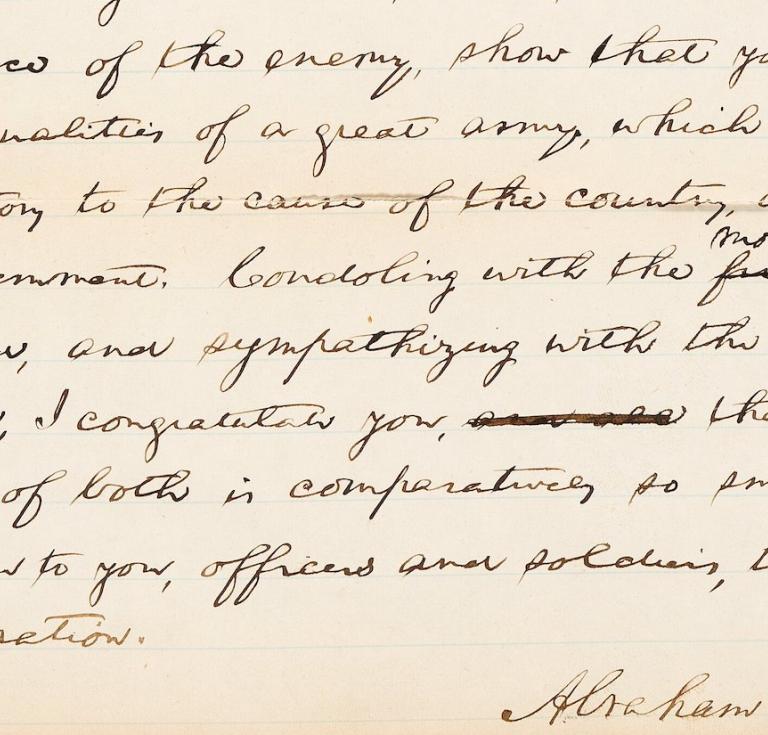 ce of the enemy, show that yo
ualities of a great army, which
tory to the cause of the country, a
mo
ernment. Condoling with the
, and sympathizing with the
I congratulate you, tha
of both is comparatively so sm
to you, officers and soldiers, t
ration.
Abraham